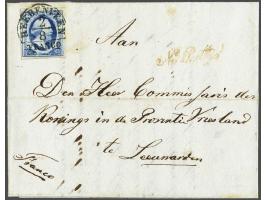 HEERENVEEN
FRANCO
Aan
Den Heer Commissaris des
Konings in de Provintie Vriesland
te
Leeuwarden
Franco